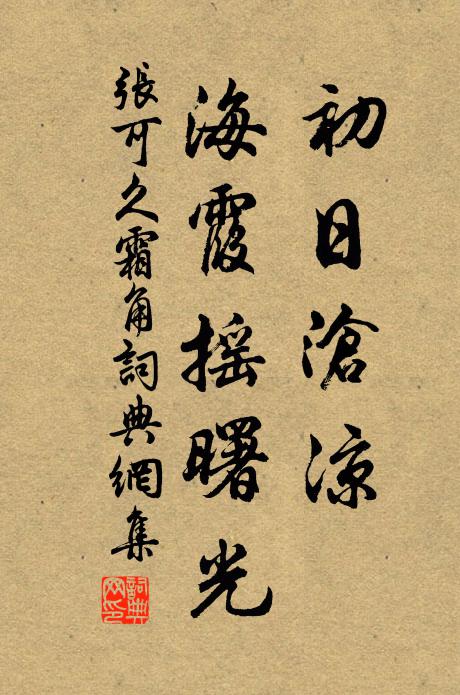 初日滄涼
海霞摇曙光
張可久霜角詞典網集
詞典网印